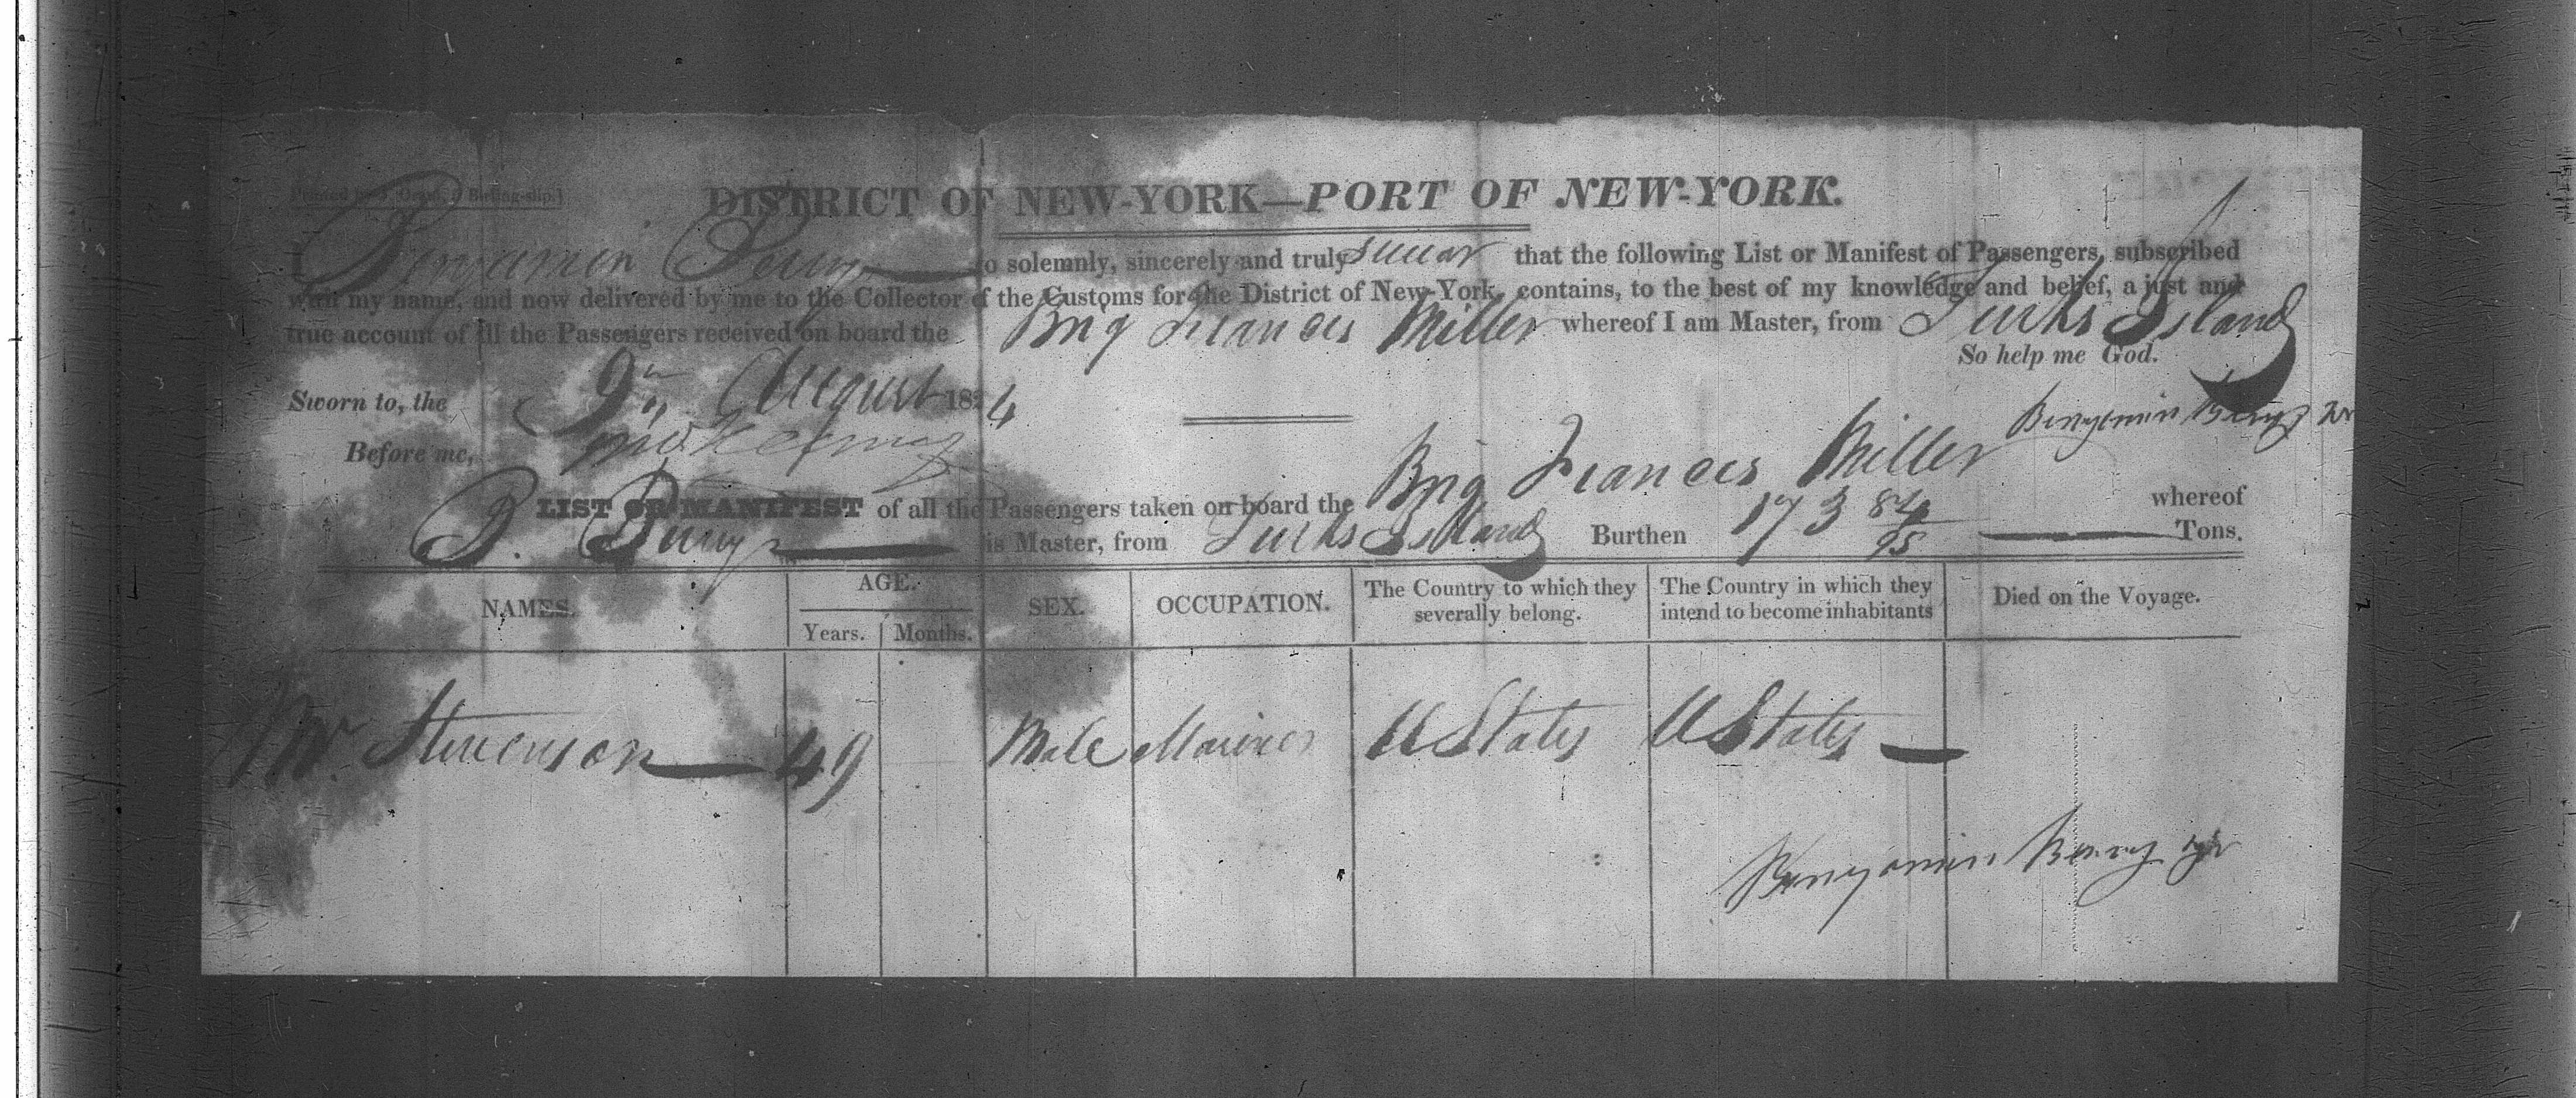 DISTRICT OF NEW-YORK—PORT OF NEW-YORK.
Benjamin Berry do solemnly, sincerely and truly swear that the following List or Manifest of Passengers, subscribed
with my name, and now delivered by me to the Collector of the Customs for the District of New-York, contains, to the best of my knowledge and belief, a just and
true account of all the Passengers received on board the Brig Frances Miller whereof I am Master, from Turks Island
So help me God.
Sworn to, the 9th August 1824
Benjamin Berry
Before me,
LIST OR MANIFEST of all the Passengers taken on board the Brig Frances Miller whereof
B. Berry is Master, from Turks Island Burthen 173 84/95 Tons.
NAMES. AGE. Years. Months. SEX. OCCUPATION. The Country to which they severally belong. The Country in which they intend to become inhabitants Died on the Voyage.
Mr. Stevenson 49 Male Mariner U States U States
Benjamin Berry